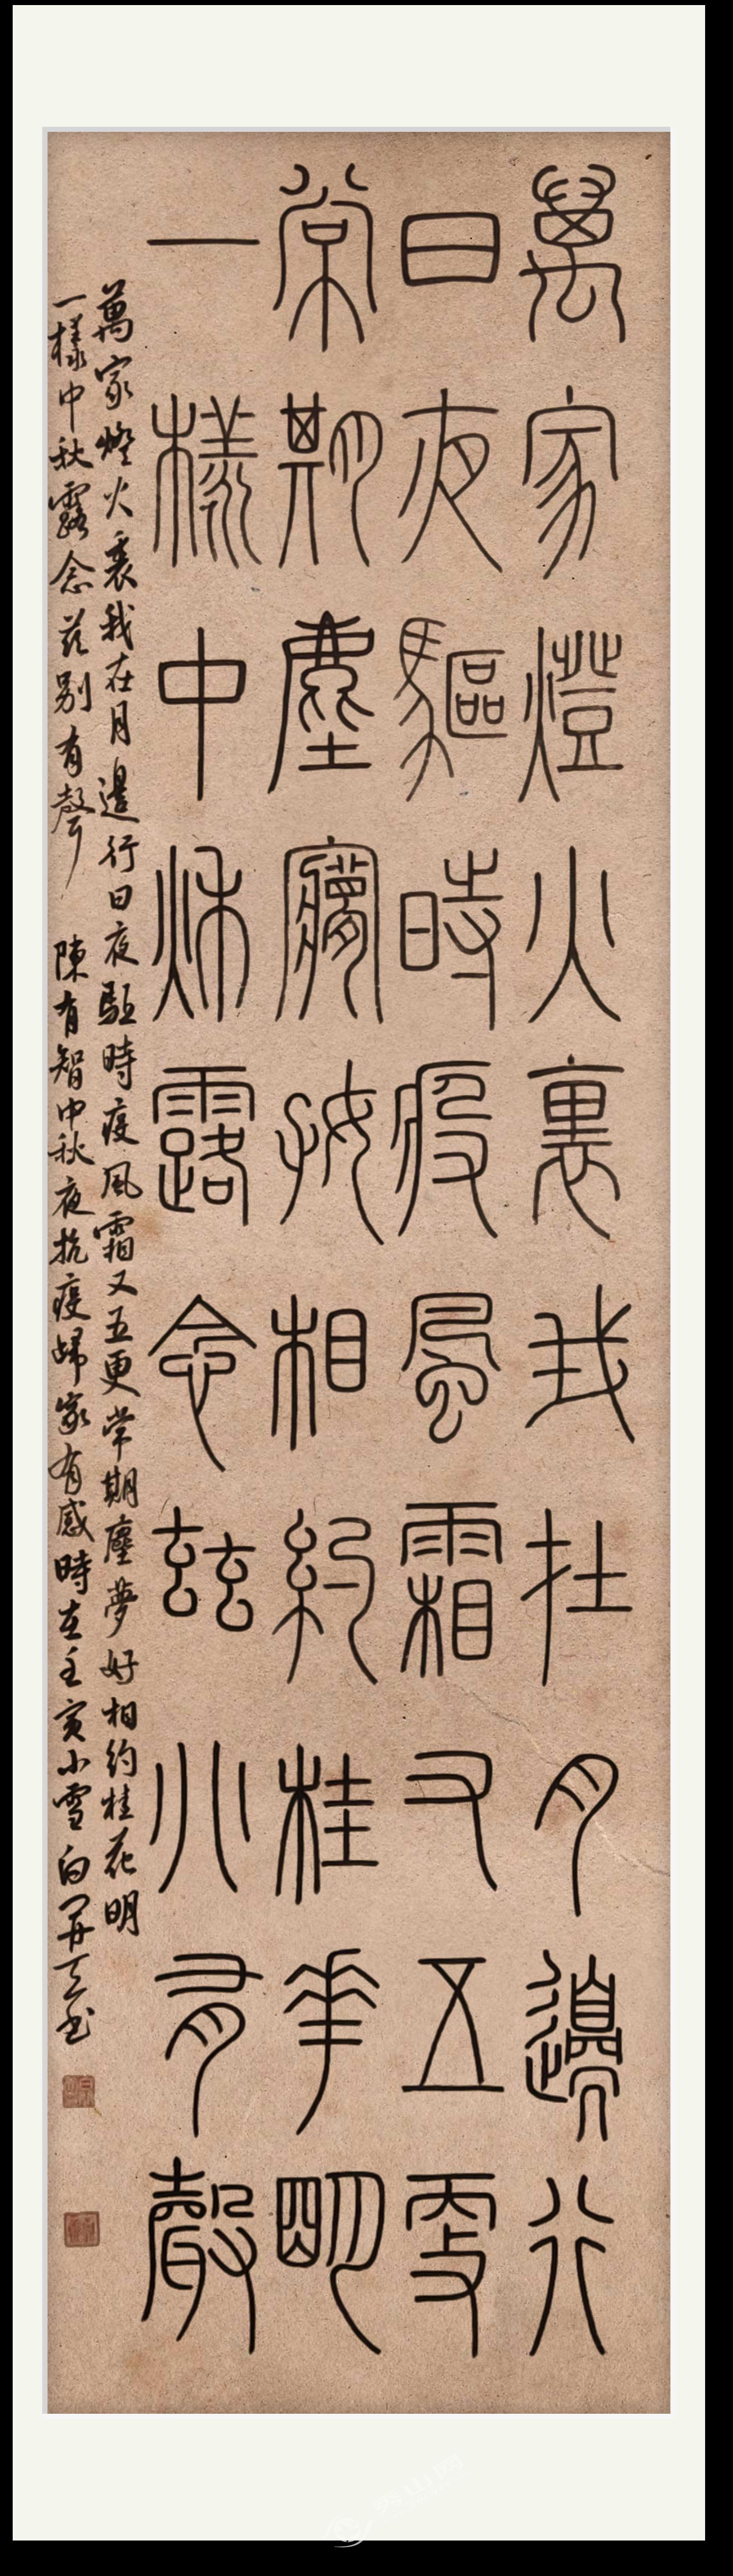 萬家燈火裏我在月邊行
日夜驅時疫風霜又五更
常期塵夢好相約桂花明
一樣中秋露念茲別有聲
萬家燈火裏我在月邊行日夜駈時疫風霜又五更常期塵夢好相約桂花明
一樣中秋露念茲別有聲 陳有智中秋夜抗疫歸家有感時在壬寅小雪白丁書